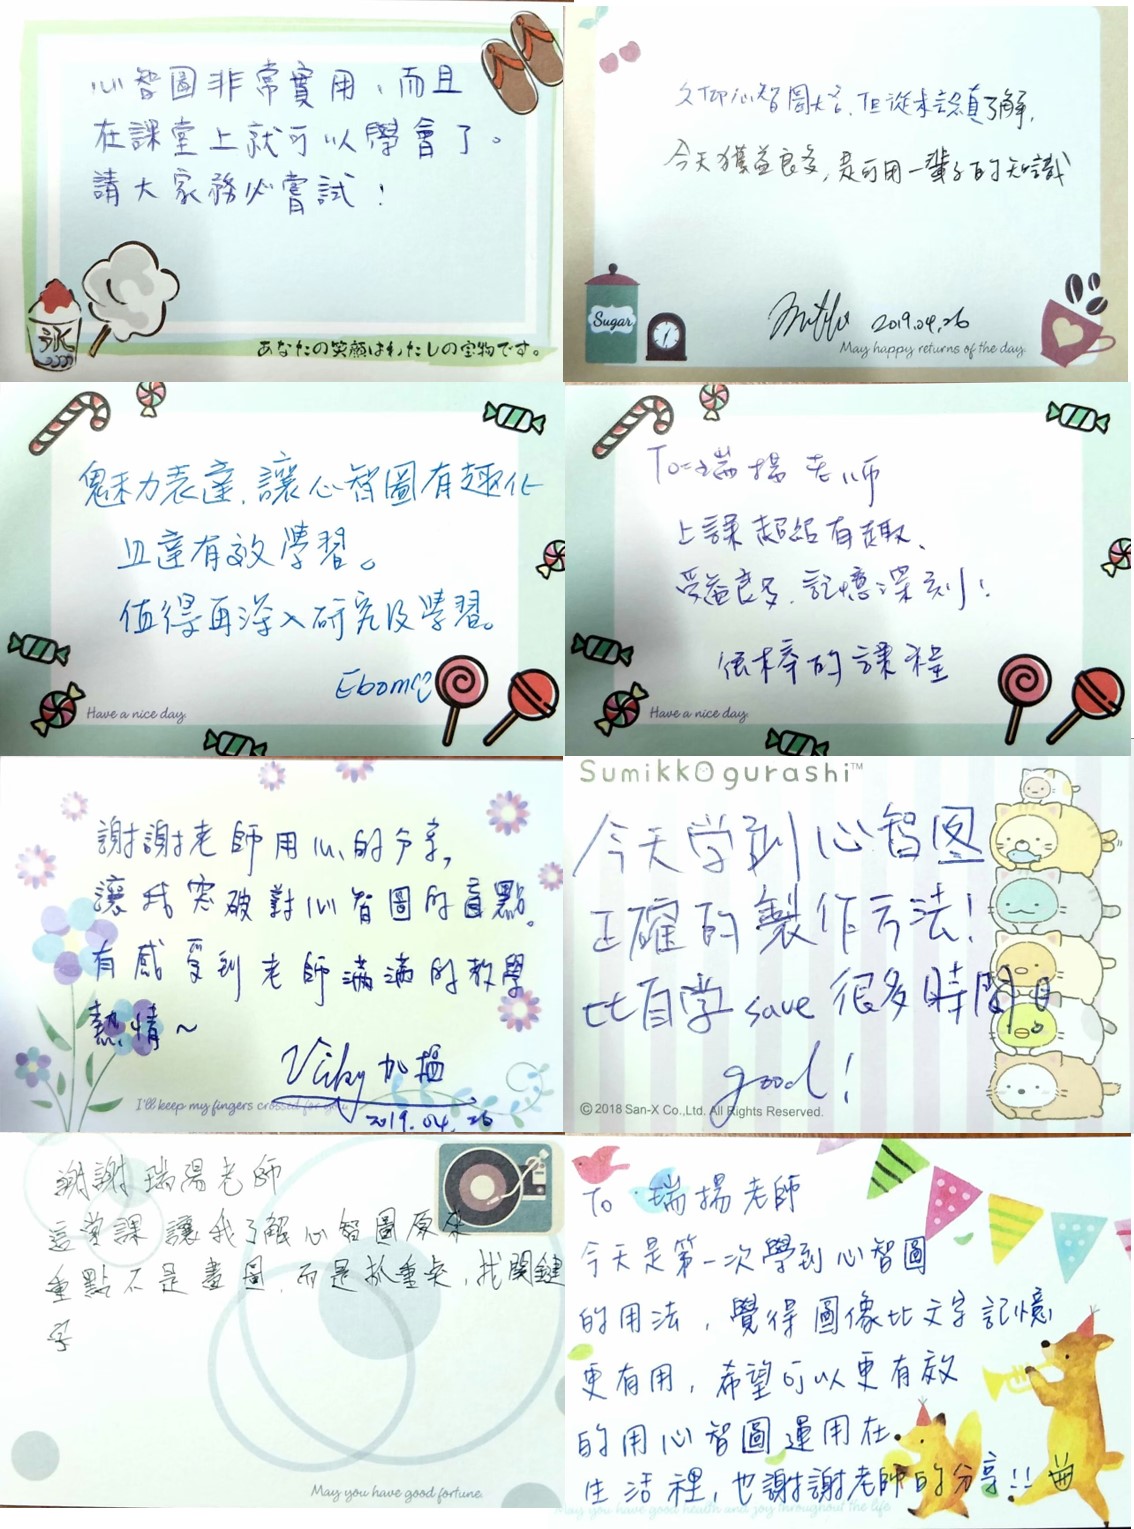 心智圖非常實用，而且
在課堂上就可以學會了。
請大家務必嘗試！
氷
あなたの笑顔はわたしの宝物です。
久仰心智圖大名，但從未認真了解，
今天獲益良多，是可用一輩子的知識
2019.04.26
Sugar
May happy returns of the day.
魅力表達，讓心智圖有趣化
且達有效學習。
值得再深入研究及學習。
Have a nice day.
To=瑞揚老師
上課超級有趣、
受益良多，記憶深刻！
很棒的課程
Have a nice day.
謝謝老師用心的分享，
讓我突破對心智圖的盲點。
有感受到老師滿滿的教學
熱情～
I'll keep my fingers crossed for you.
2019.04.26
Sumikkogurashi™
今天学到心智图
正確的製作方法！
比自学save很多時間
good！
© 2018 San-X Co.,Ltd. All Rights Reserved.
謝謝瑞陽老師
這堂課讓我了解心智圖原來
重點不是畫圖，而是抓重點，找關鍵
字
May you have good fortune.
To 瑞揚老師
今天是第一次學到心智圖
的用法，覺得圖像比文字記憶
更有用，希望可以更有效
的用心智圖運用在
生活裡，也謝謝老師的分享!!
May you have good health and joy throughout the life.